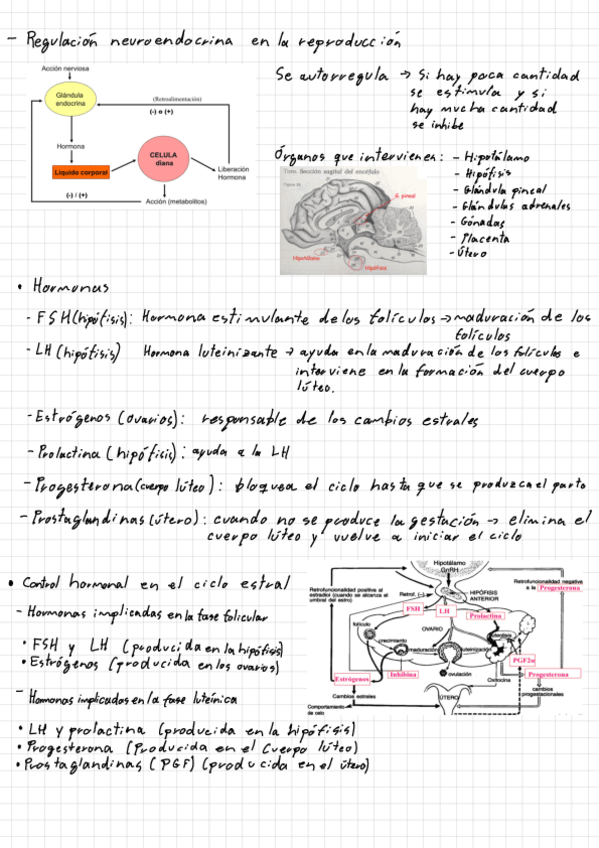 - Regulación neuroendocrina en la reproducción
Acción nerviosa
Glándula
endocrina
(Retroalimentación)
(-) o (+)
Hormona
Líquido corporal
CELULA
diana
Liberación
Hormona
(-) / (+)
Acción (metabolitos)
Se autorregula → Si hay poca cantidad
se estimula y si
hay mucha cantidad
se inhibe
Órganos que intervienen: - Hipotálamo
- Hipófisis
- Glándula pineal
- Glándulas adrenales
- Gónadas
- Placenta
- Útero
Toro. Sección sagital del encéfalo
G. pineal
Hipotálamo
Hipófisis
• Hormonas
- FSH (hipófisis): Hormona estimulante de los folículos → maduración de los
folículos
- LH (hipófisis) Hormona luteinizante → ayuda en la maduración de los folículos e
interviene en la formación del cuerpo
lúteo.
- Estrógenos (ovarios): responsable de los cambios estrales
- Prolactina (hipófisis): ayuda a la LH
- Progesterona (cuerpo lúteo): bloquea el ciclo hasta que se produzca el parto
- Prostaglandinas (útero): cuando no se produce la gestación → elimina el
cuerpo lúteo y vuelve a iniciar el ciclo
• Control hormonal en el ciclo estral
- Hormonas implicadas en la fase folicular
• FSH y LH (producida en la hipófisis)
• Estrógenos (producida en los ovarios)
- Hormonas implicadas en la fase luteínica
• LH y prolactina (producida en la hipófisis)
• Progesterona (Producida en el Cuerpo lúteo)
• Prostaglandinas (PGF) (producida en el útero)
Hipotálamo
GnRH
Retrofuncionalidad positiva al
estradiol (cuando se alcanza el
umbral del estro)
Retrof. (-)
HIPÓFISIS
ANTERIOR
Retrofuncionalidad negativa
a la Progesterona
FSH
LH
Prolactina
folículo
OVARIO
crecimiento
maduración
luteinización
PGF2α
Estrógenos
Inhibina
ovulación
Oxitocina
Progesterona
Cambios estrales
ÚTERO
cambios
progestacionales
Comportamiento
de celo